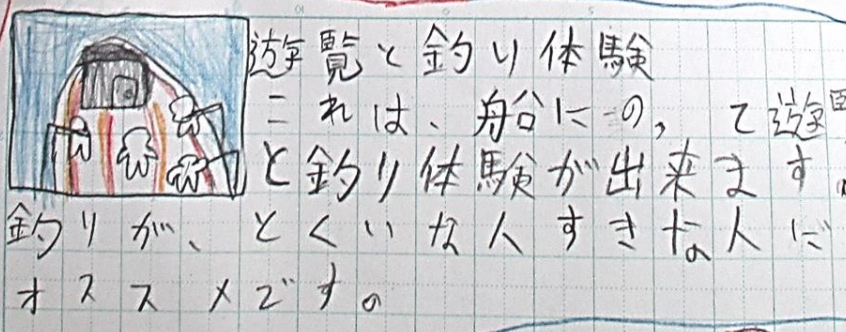 遊覧と釣り体験
これは、船にのって遊覧
と釣り体験が出来ます。
釣りが、とくいな人すきな人に
オススメです。